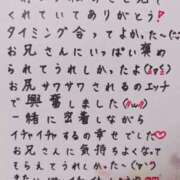 くれていてありがとう!
タイミング合ってよかった〜(
お兄さんにいっぱい褒め
られてうれしかったよ
お尻サワサワされるのエッチ
で興奮しました
一緒に密着しながら
イチャイチャするの幸せでした
お兄さんに気持ちよくなって
もらえてうれしかった〜